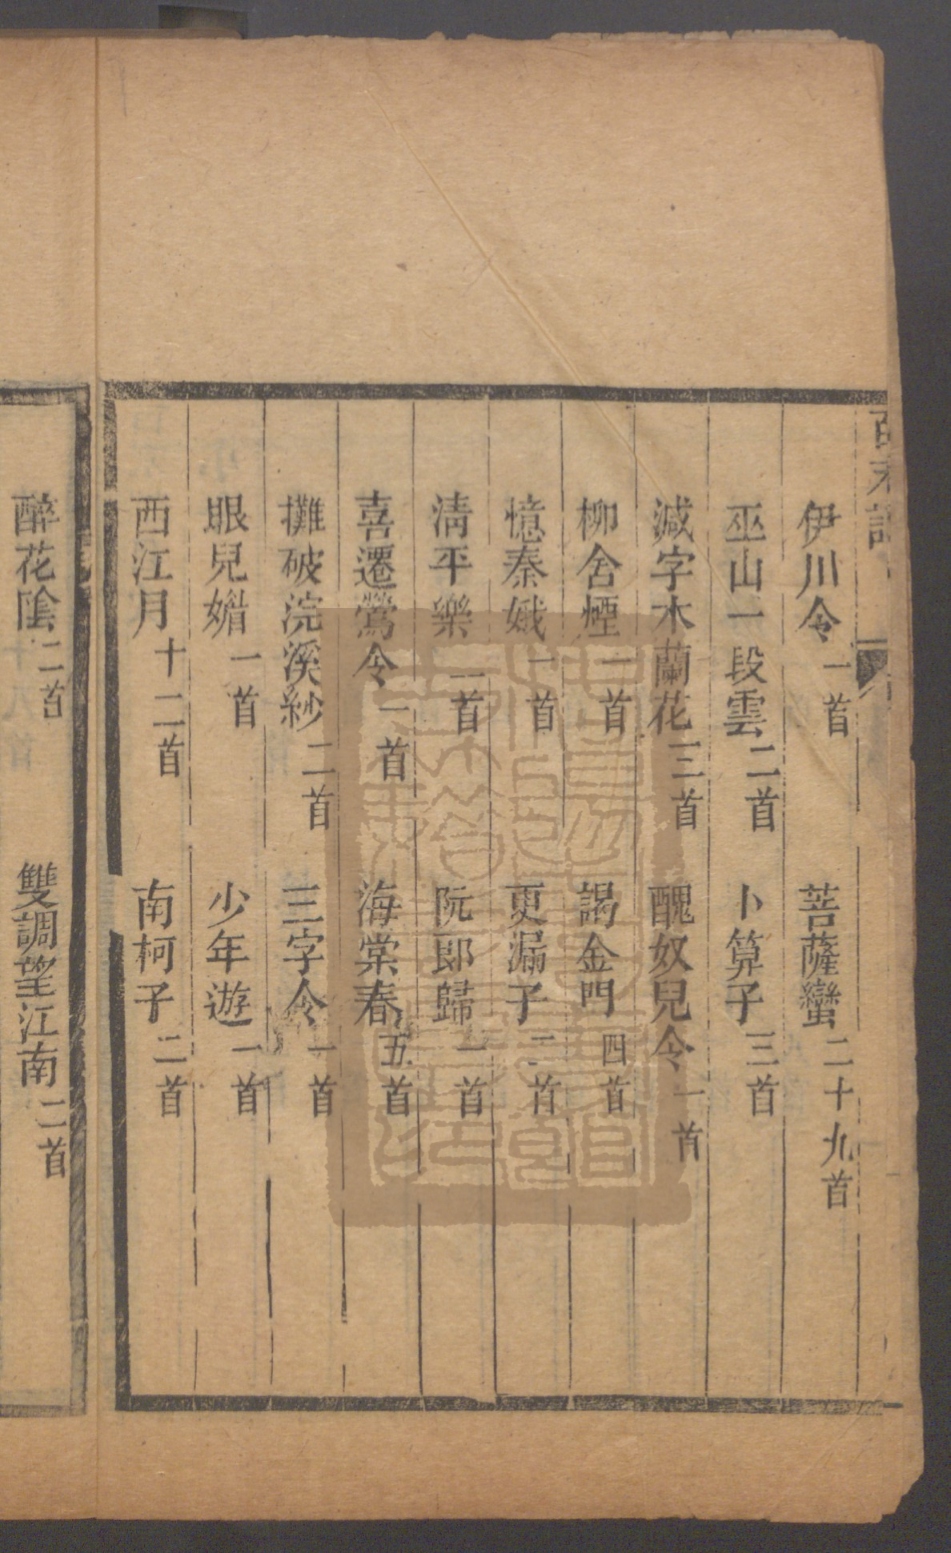 百末詞
伊川令一首　菩薩蠻二十九首
巫山一段雲二首　卜算子三首
減字木蘭花三首　醜奴兒令一首
柳含煙一首　謁金門四首
憶秦娥一首　更漏子二首
清平樂二首　阮郎歸一首
喜遷鶯令一首　海棠春五首
攤破浣溪紗二首　三字令一首
眼兒媚一首　少年遊一首
西江月十二首　南柯子二首
醉花陰二首　雙調望江南二首